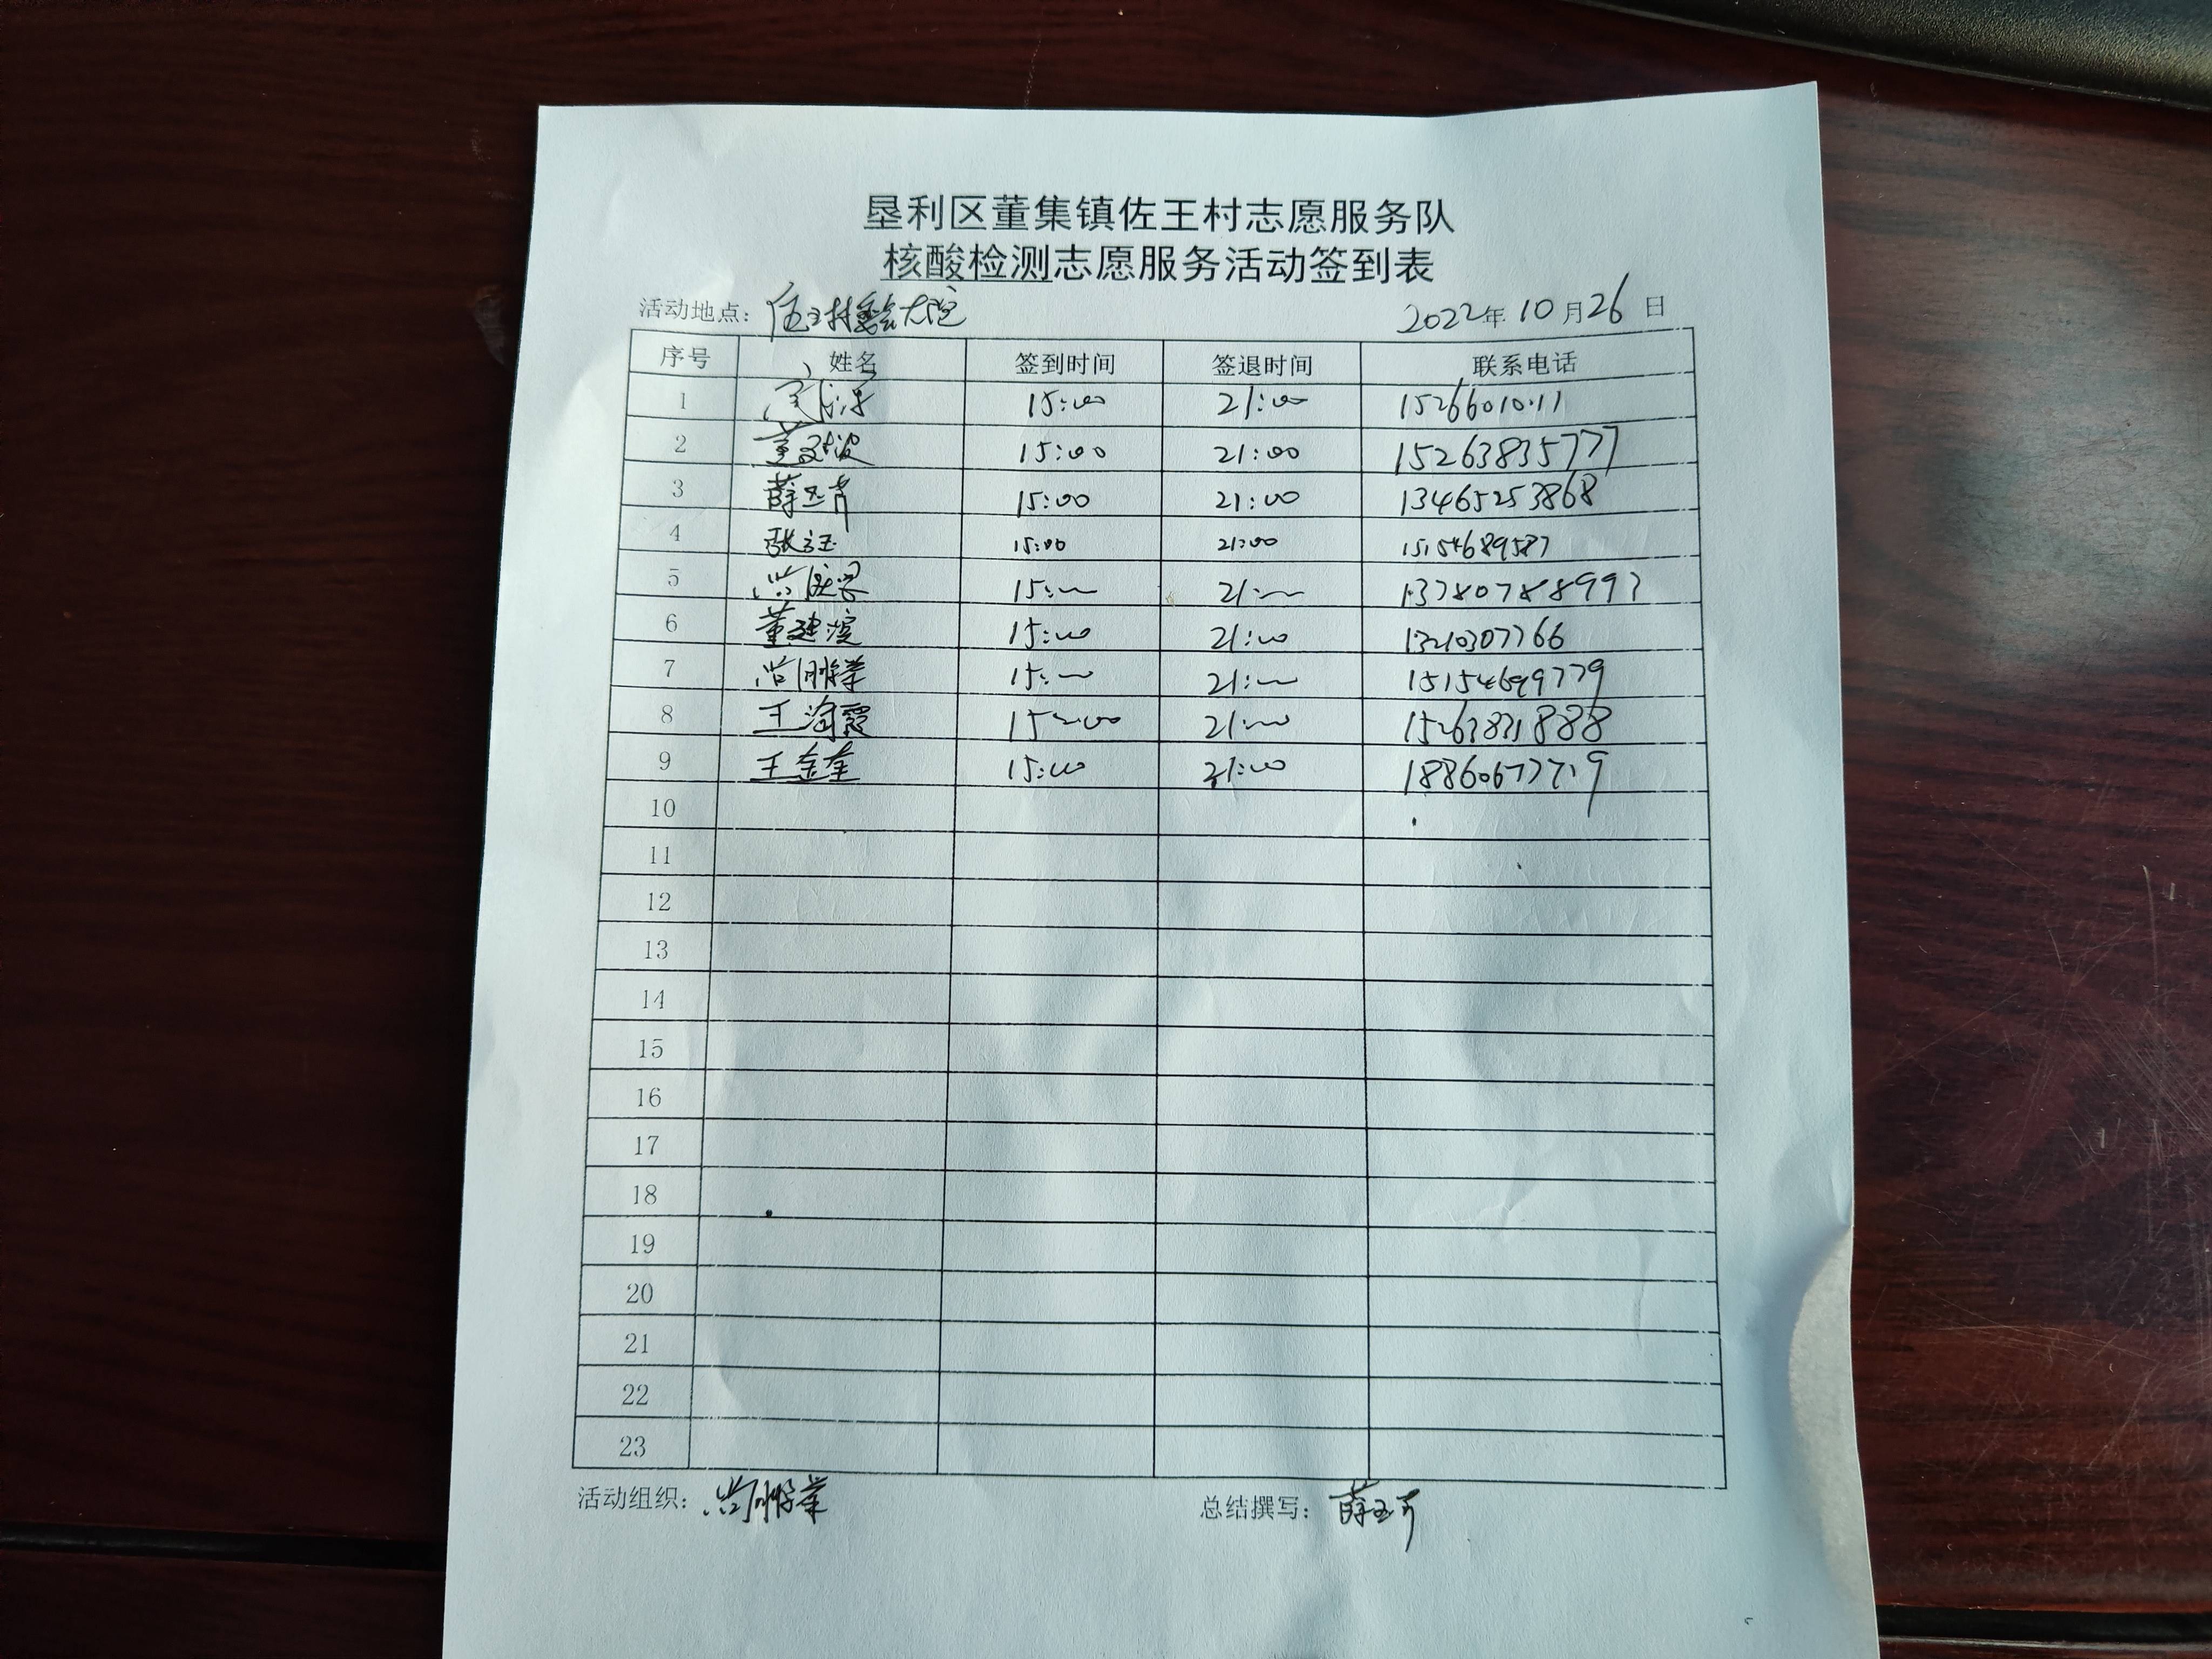 垦利区董集镇佐王村志愿服务队
核酸检测志愿服务活动签到表
活动地点：佐王村委会大院 2022年10月26日
序号 姓名 签到时间 签退时间 联系电话
1 15:00 21:00
2 15:00 21:00 15263835777
3 薛玉芹 15:00 21:00 13465253868
4 张 15:00 21:00 15154689587
5 尚 15:00 21:00
6 董建滨 15:00 21:00 13210307766
7 尚鹏举 15:00 21:00 15154699779
8 王海霞 15:00 21:00 15263831888
9 王金奎 15:00 21:00 18860677719
10
11
12
13
14
15
16
17
18
19
20
21
22
23
活动组织：尚鹏举 总结撰写：薛玉芹